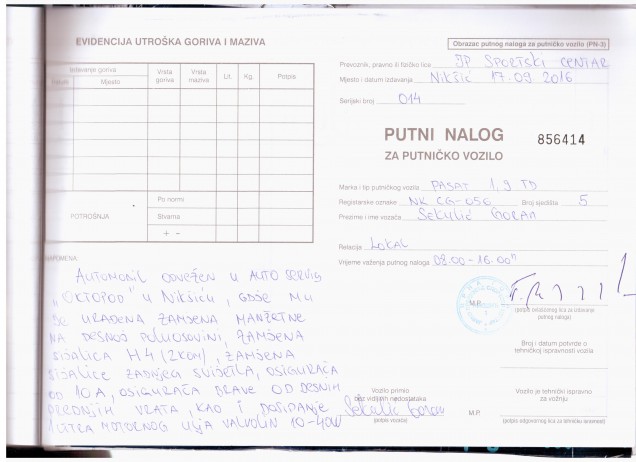 EVIDENCIJA UTROŠKA GORIVA I MAZIVA
Izdavanje goriva
Datum Mjesto Vrsta goriva Vrsta maziva Lit. Kg. Potpis
POTROŠNJA
Po normi
Stvarna
+ -
NAPOMENA
AUTOMOBIL ODVEŽEN U AUTO SERVIS
„OKTOPOD" U NIKŠIĆU, GDJE MU
JE URAĐENA ZAMJENA MANŽETNE
NA DESNOJ POLUOSOVINI, ZAMJENA
SIJALICA H4 (2 KOM), ZAMJENA
SIJALICE ZADNJEG SVIJETLA, OSIGURAČA
OD 10A, OSIGURAČA BRAVE OD DESNIH
PREDNJIH VRATA, KAO I DOSIPANJE
1 LITRA MOTORNOG ULJA VALVOLIN 10-40W
Obrazac putnog naloga za putničko vozilo (PN-3)
Prevoznik, pravno ili fizičko lice JP SPORTSKI CENTAR
Mjesto i datum izdavanja NIKŠIĆ 17.09 2016
Serijski broj 014
PUTNI NALOG
ZA PUTNIČKO VOZILO
856414
Marka i tip putničkog vozila PASAT 1,9 TD
Registarske oznake NK CG-056 Broj sjedišta 5
Prezime i ime vozača SEKULIĆ GORAN
Relacija LOKAL
Vrijeme važenja putnog naloga 08.00-16.00h
M.P.
(potpis ovlašćenog lica za izdavanje
putnog naloga)
Broj i datum potvrde o
tehničkoj ispravnosti vozila
Vozilo primio
bez vidljivih nedostataka
Sekulić Goran
(potpis vozača)
Vozilo je tehnički ispravno
za vožnju
M.P.
(potpis odgovornog lica za tehničku ispravnost)